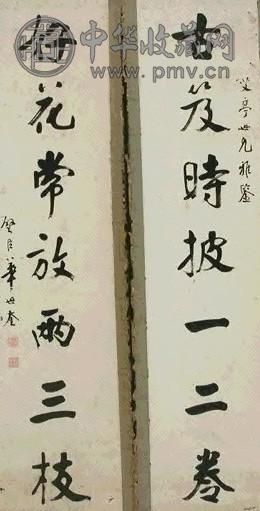 中华收藏网
www.pmv.cn
笑亭世兄雅鑒
古笈時披一二卷
花常放兩三枝
臣華世奎